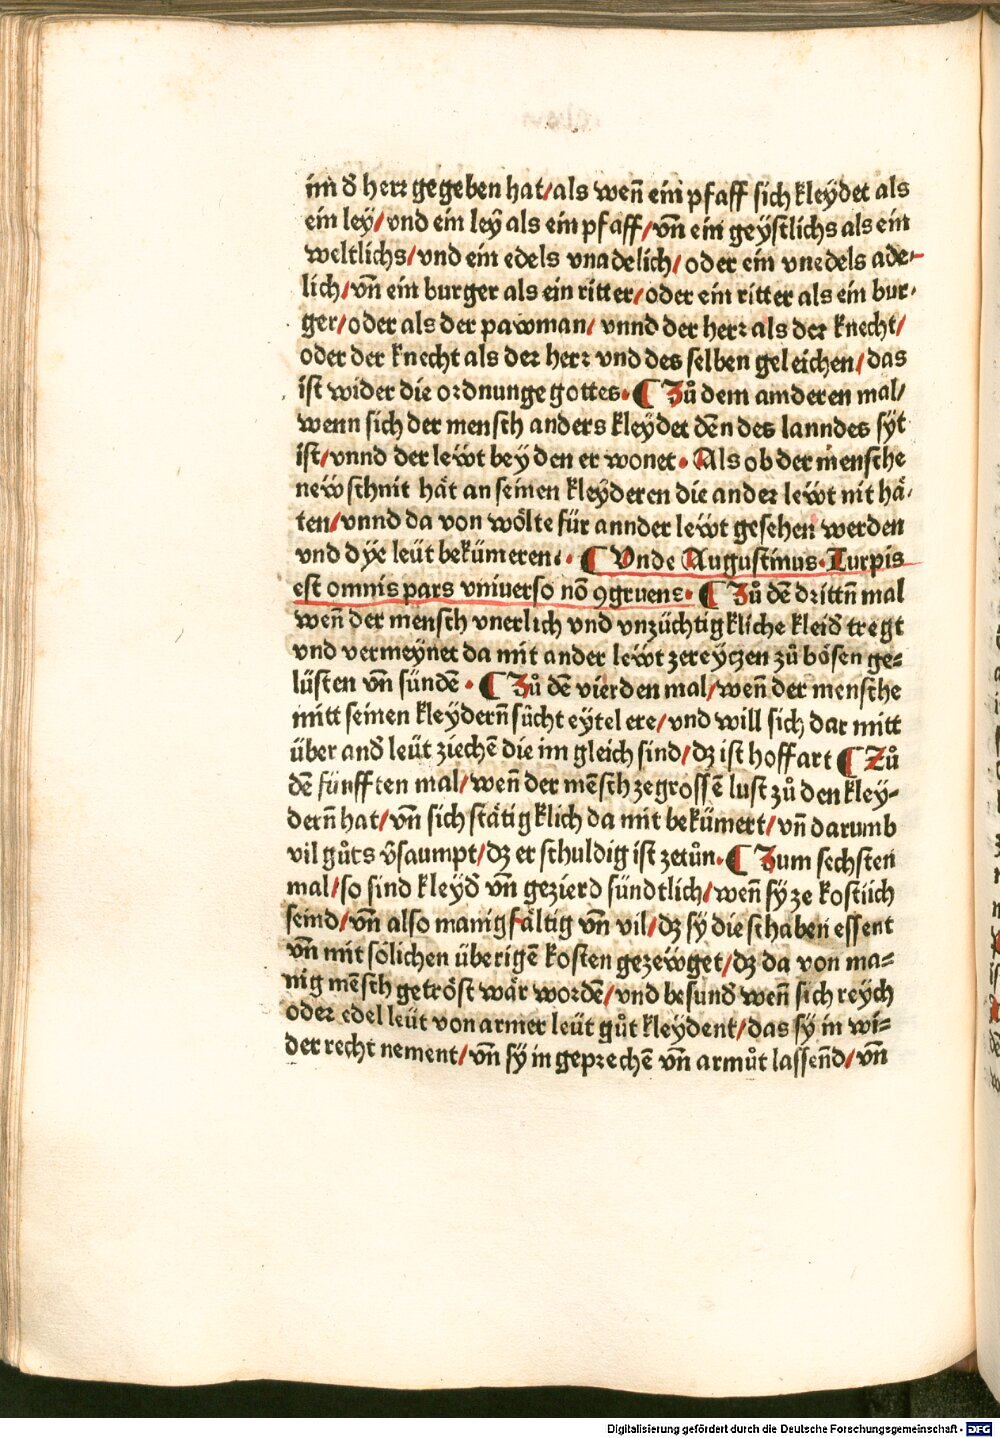 im d̉ herr gegeben hat/als wen̄ ein pfaff sich kleÿdet als
ein leÿ/vnd ein leÿ als ein pfaff/vn̄ ein geÿstlichs als ein
weltlichs/vnd ein edels vnadelich/oder ein vnedels ade-
lich/vn̄ ein burger als ein ritter/oder ein ritter als ein bur-
ger/oder als der pawman/vnnd der herr als der knecht/
oder der knecht als der herr vnd des selben geleichen/das
ist wider die ordnunge gottes. ¶ Zů dem anderen mal/
wenn sich der mensch anders kleÿdet dēn des lanndes sÿt
ist/vnnd der leẅt beÿ den er wonet. Als ob der mensche
neẅ schnit hät an seinen kleÿderen die ander leẅt nit hä-
ten/vnnd da von wölte für annder leẅt gesehen werden
vnd dÿe leüt bekümeren. ¶ Vnde Augustinus. Turpis
est omnis pars vniuerso nō ꝯgruens. ¶ Zů dē dꝛittn̄ mal
wen̄ der mensch vnerlich vnd vnzüchtigkliche kleid tregt
vnd vermeÿnet da mit ander leẅt zereÿczen zů bösen ge-
lüsten vn̄ sündē. ¶ Zů dē vierden mal/wen̄ der mensche
mitt seinen kleÿdern̄ sůcht eÿtel ere/vnd will sich dar mitt
über and̉ leüt ziechē die im gleich sind/dz ist hoffart ¶ Zů
dē fünfften mal/wen̄ der mēsch ze grossē lust zů den kleÿ-
dern̄ hat/vn̄ sich stätigklich da mit bekümert/vn̄ darumb
vil gůts v̉saumpt/dz er schuldig ist zetůn. ¶ Zum sechsten
mal/so sind kleÿd̉ vn̄ gezierd sündtlich/wen̄ sÿ ze kostlich
seind/vn̄ also manigfältig vn̄ vil/dz sÿ die schaben essent
vn̄ mit sölichen überigē kosten gezeẅget/dz da von ma-
nig mēsch getröst wär wordē/vnd besund̉ wen̄ sich reÿch
oder edel leüt von armer leüt gůt kleÿdent/das sÿ in wi-
der recht nement/vn̄ sÿ in geprechē vn̄ armůt lassen̄d/vn̄
Digitalisierung gefördert durch die Deutsche Forschungsgemeinschaft - DFG